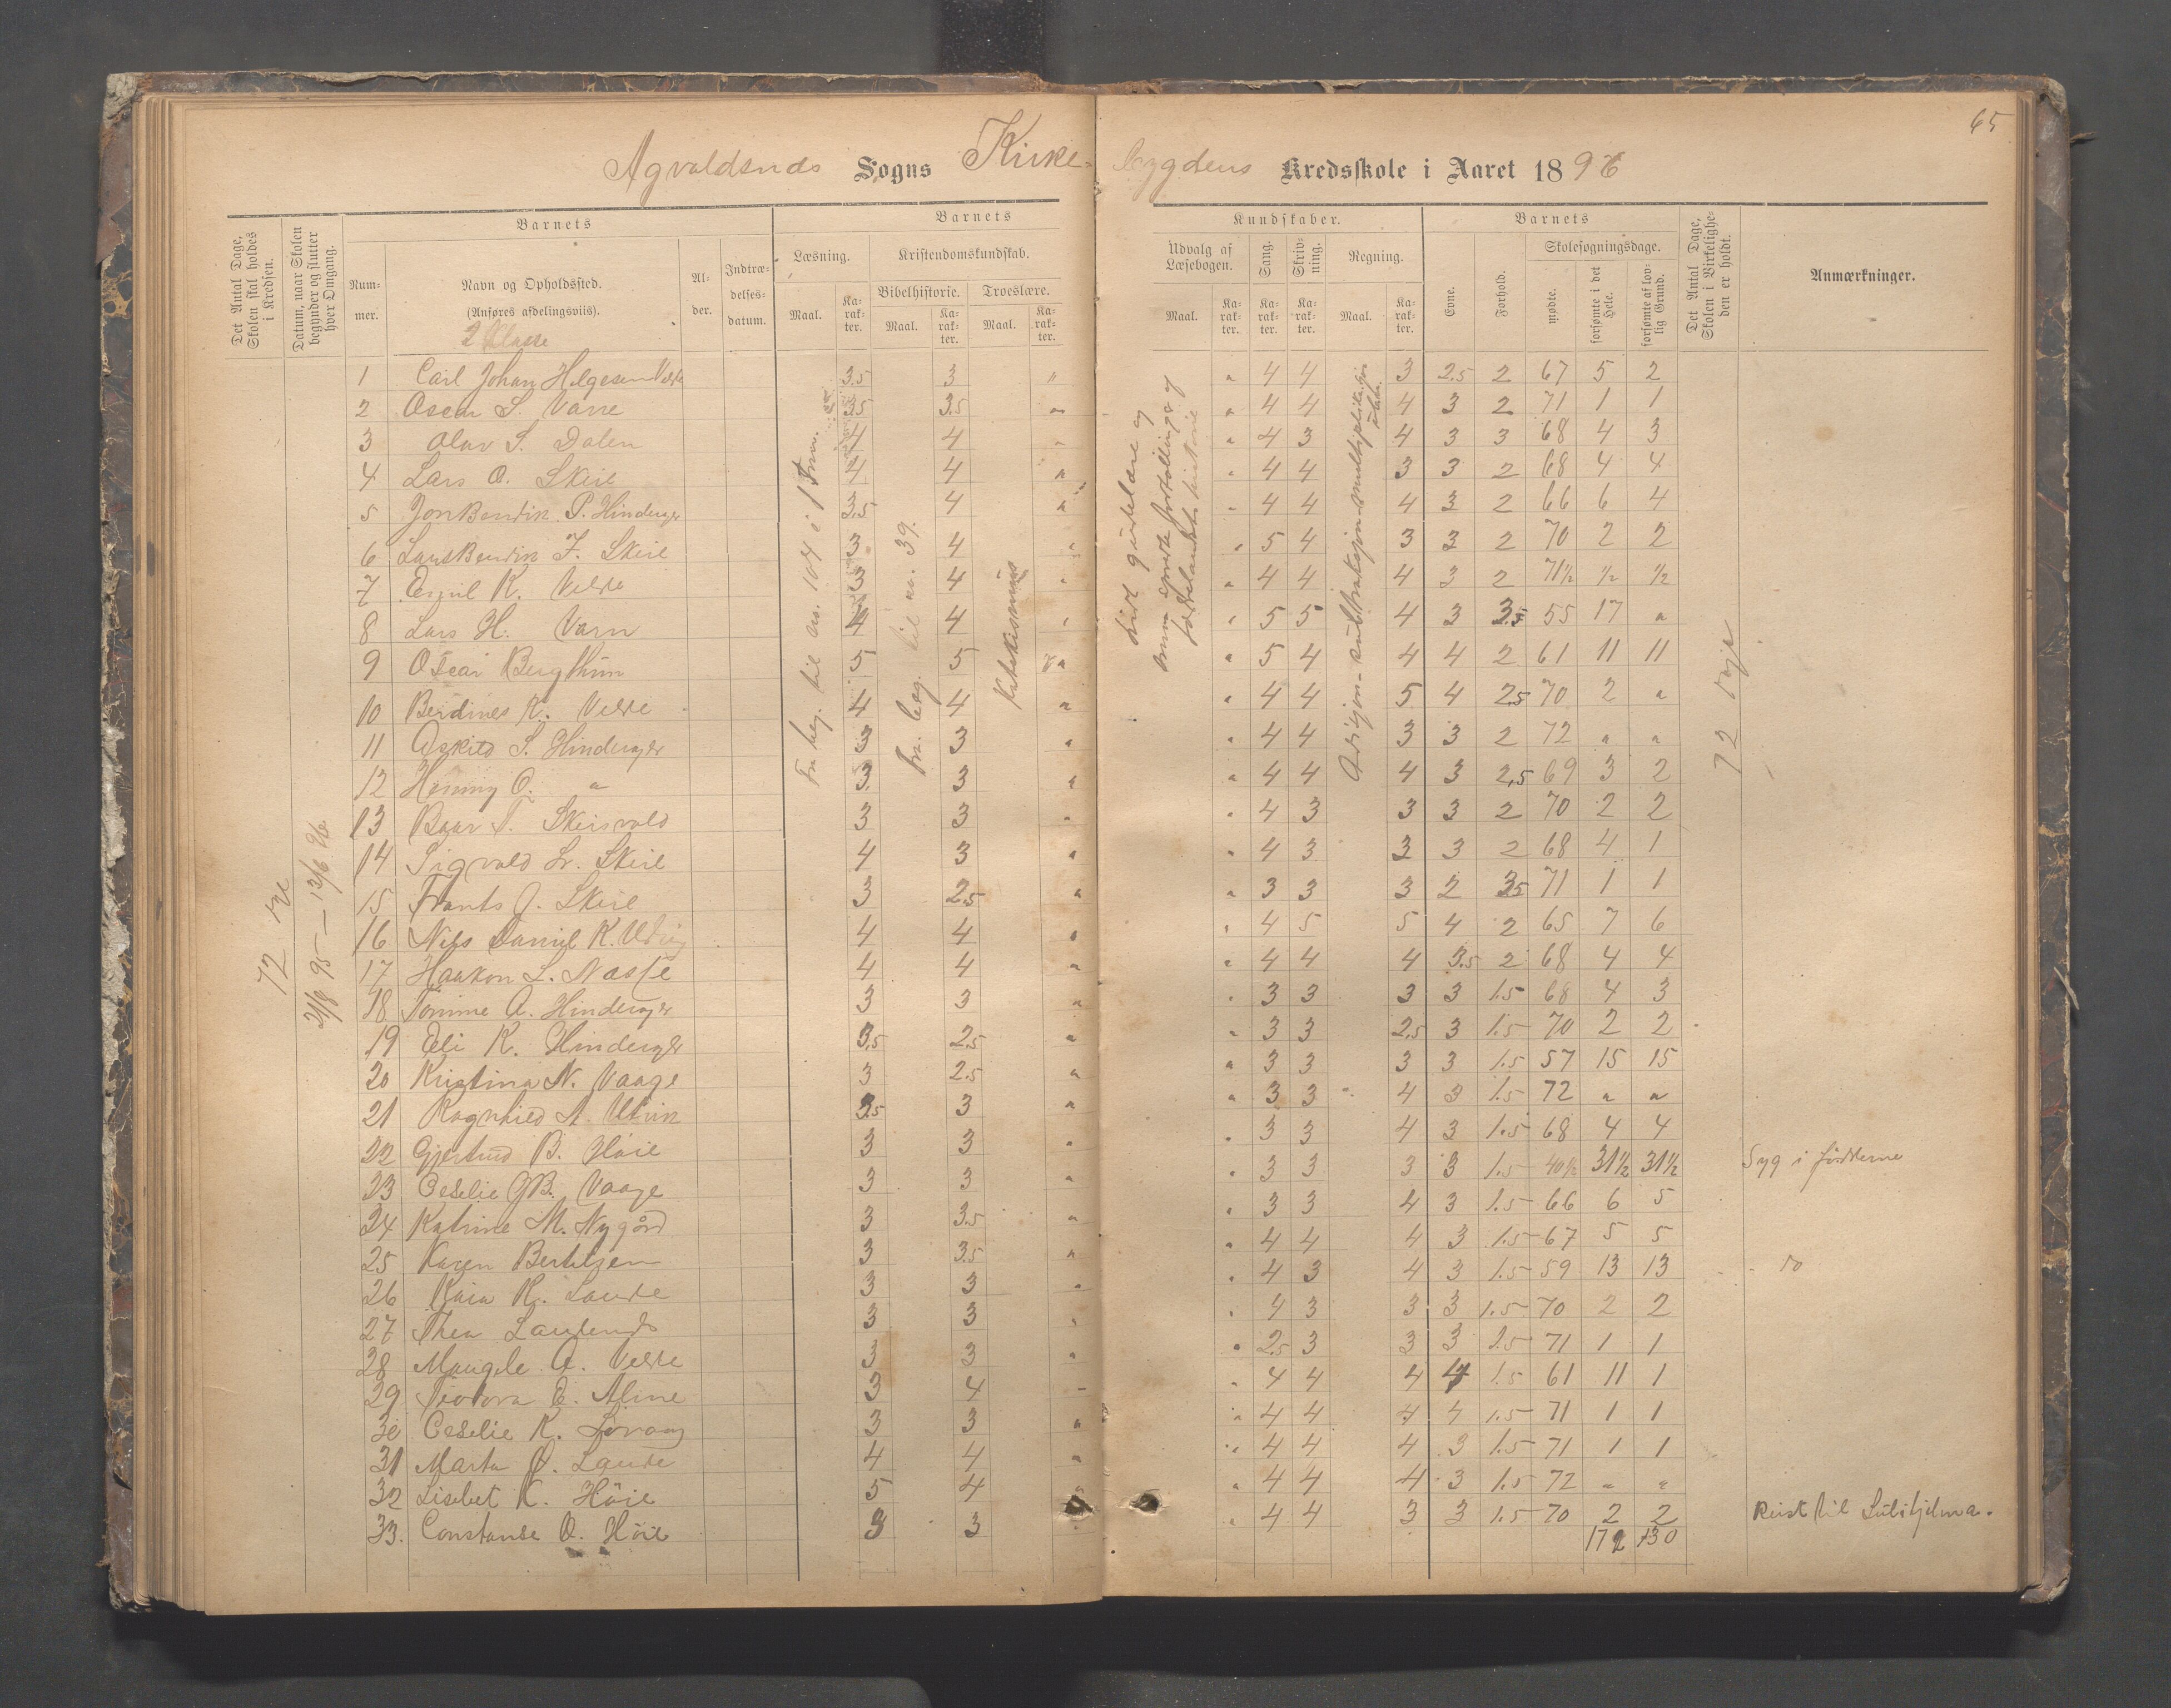 65
Agvaldsnds Sogns Kirke-
bygdens Kredsskole i Aaret 1896
Det Antal Dage, Skolen skal holdes i Kredsen.
Datum, naar Skolen begynder og slutter hver Omgang.
Barnets
Num-mer.
Navn og Opholdssted.
(Anføres afdelingsviis).
2 Klasse
Al-der.
Indtræ-delses-datum.
Barnets
Læsning.
Kristendomskundskab.
Bibelhistorie.
Troeslære.
Maal.
Ka-rak-ter.
Maal.
Ka-rak-ter.
Maal.
Ka-rak-ter.
Kundskaber.
Udvalg af Læsebogen.
Sang.
Skriv-ning.
Regning.
Maal.
Ka-rak-ter.
Ka-rak-ter.
Ka-rak-ter.
Maal.
Ka-rak-ter.
Barnets
Evne.
Forhold.
Skolesøgningsdage.
mødte.
forsømte i det Hele.
forsømte af lov-lig Grund.
Det Antal Dage, Skolen i Virkelighe-den er holdt.
Anmærkninger.
72
21/8 95 — 13/6 96
Katekismus
72
1 Carl Johan Helgesen Velde 3.5 3 " " 4 4 3 2.5 2 67 5 2
2 Oscar S. Varre 3.5 3.5 " " 4 4 4 3 2 71 1 1
3 Olav S. Dalen 4 4 " " 4 3 4 3 3 68 4 3
4 Lars O. Skeie 4 4 " " 4 4 3 3 2 68 4 4
5 Jon Bendik P. Hinderager 3.5 4 " " 4 4 4 3 2 66 6 4
6 Lars Bendik J. Skeie 3 4 " " 5 4 3 3 2 70 2 2
7 Emil K. Velde 3 4 " " 4 4 4 3 2 71½ ½ ½
8 Lars H. Varn 4 4 " " 5 5 4 3 3.5 55 17 "
9 Oscar Bergthun 5 5 " " 5 4 4 4 2 61 11 11
10 Berdines K. Velde 4 4 " " 4 4 5 4 2.5 70 2 "
11 Askild S. Hinderager 3 3 " " 4 4 3 3 2 72 " "
12 Henny O. " 3 3 " " 4 4 4 3 2.5 69 3 2
13 Baar T. Skeisvold 3 3 " " 4 3 3 3 2 70 2 2
14 Sigvald Lr. Skeie 4 3 " " 4 3 3 3 2 68 4 1
15 Frants J. Skeie 3 2.5 " " 3 3 3 2 3.5 71 1 1
16 Nils Daniel K. 4 4 " " 4 5 5 4 2 65 7 6
17 Haakon L. Nasse 4 4 " " 4 4 4 3.5 2 68 4 4
18 Tomine A. Hinderager 3 3 " " 3 3 3 3 1.5 68 4 3
19 Eli K. Hinderager 3.5 2.5 " " 3 3 2.5 3 1.5 70 2 2
20 Kristina N. Vaage 3 2.5 " " 3 3 3 3 1.5 57 15 15
21 Ragnhild A. Utvik 3.5 3 " " 3 3 4 3 1.5 72 " "
22 Gjertrud B. Høie 3 3 " " 3 3 4 3 1.5 68 4 4
23 Ceselie GB. Vaage 3 3 " " 3 3 3 3 1.5 40½ 31½ 31½ Syg i føtterne
24 Katrine M. Nygård 3 3.5 " " 3 3 4 3 1.5 66 6 5
25 Karen Bertelsen 3 3.5 " " 4 4 4 3 1.5 67 5 5
26 Kaia K. Lande 3 3 " " 4 3 4 3 1.5 59 13 13 - - do
27 Thea Laulands 3 3 " " 4 3 3 3 1.5 70 2 2
28 Maugele A. Velde 3 3 " " 2.5 3 3 3 1.5 71 1 1
29 Teodora E. Aline 3 4 " " 4 4 4 4 1.5 61 11 1
30 Ceselie K. 3 3 " " 4 4 4 4 1.5 71 1 1
31 Marta O. Lande 4 4 " " 4 4 4 3 1.5 71 1 1
32 Lisebet K. Høie 5 4 " " 4 4 4 3 1.5 72 " "
33. Constanse O. Høie 3 3 " " 4 4 3 3 1.5 70 2 2 Reist til
172 130